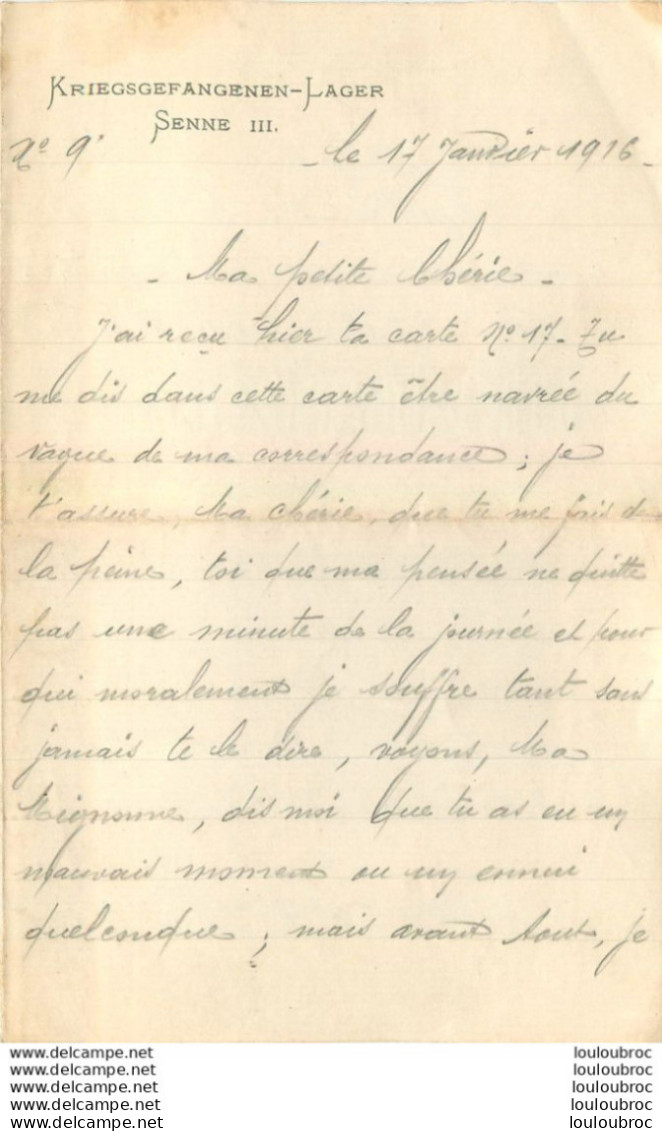 KRIEGSGEFANGENEN-LAGER
SENNE III.
N° 9. - le 17 Janvier 1916 -
- Ma petite Chérie -
J'ai reçu hier ta carte N° 17 - Tu
me dis dans cette carte être navrée du
vague de ma correspondance ; je
t'assure, Ma chérie, que tu me fais de
la peine, toi que ma pensée ne quitte
pas une minute de la journée et pour
qui moralement je souffre tant sans
jamais te le dire, voyons, Ma
Mignonne, dis moi que tu as eu un
mauvais moment ou un ennui
quelconque ; mais avant tout, je
www.delcampe.net louloubroc
www.delcampe.net louloubroc
www.delcampe.net louloubroc
www.delcampe.net louloubroc
www.delcampe.net louloubroc